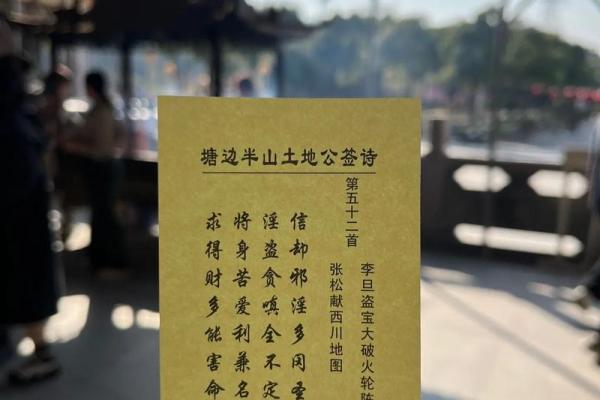 塘边半山土地公签诗
第五十二首
李旦盗宝大破火轮阵
张松献西川地图
信却邪淫多罔圣
淫盗贪嗔全不定
将身苦爱利兼名
求得财多能害命